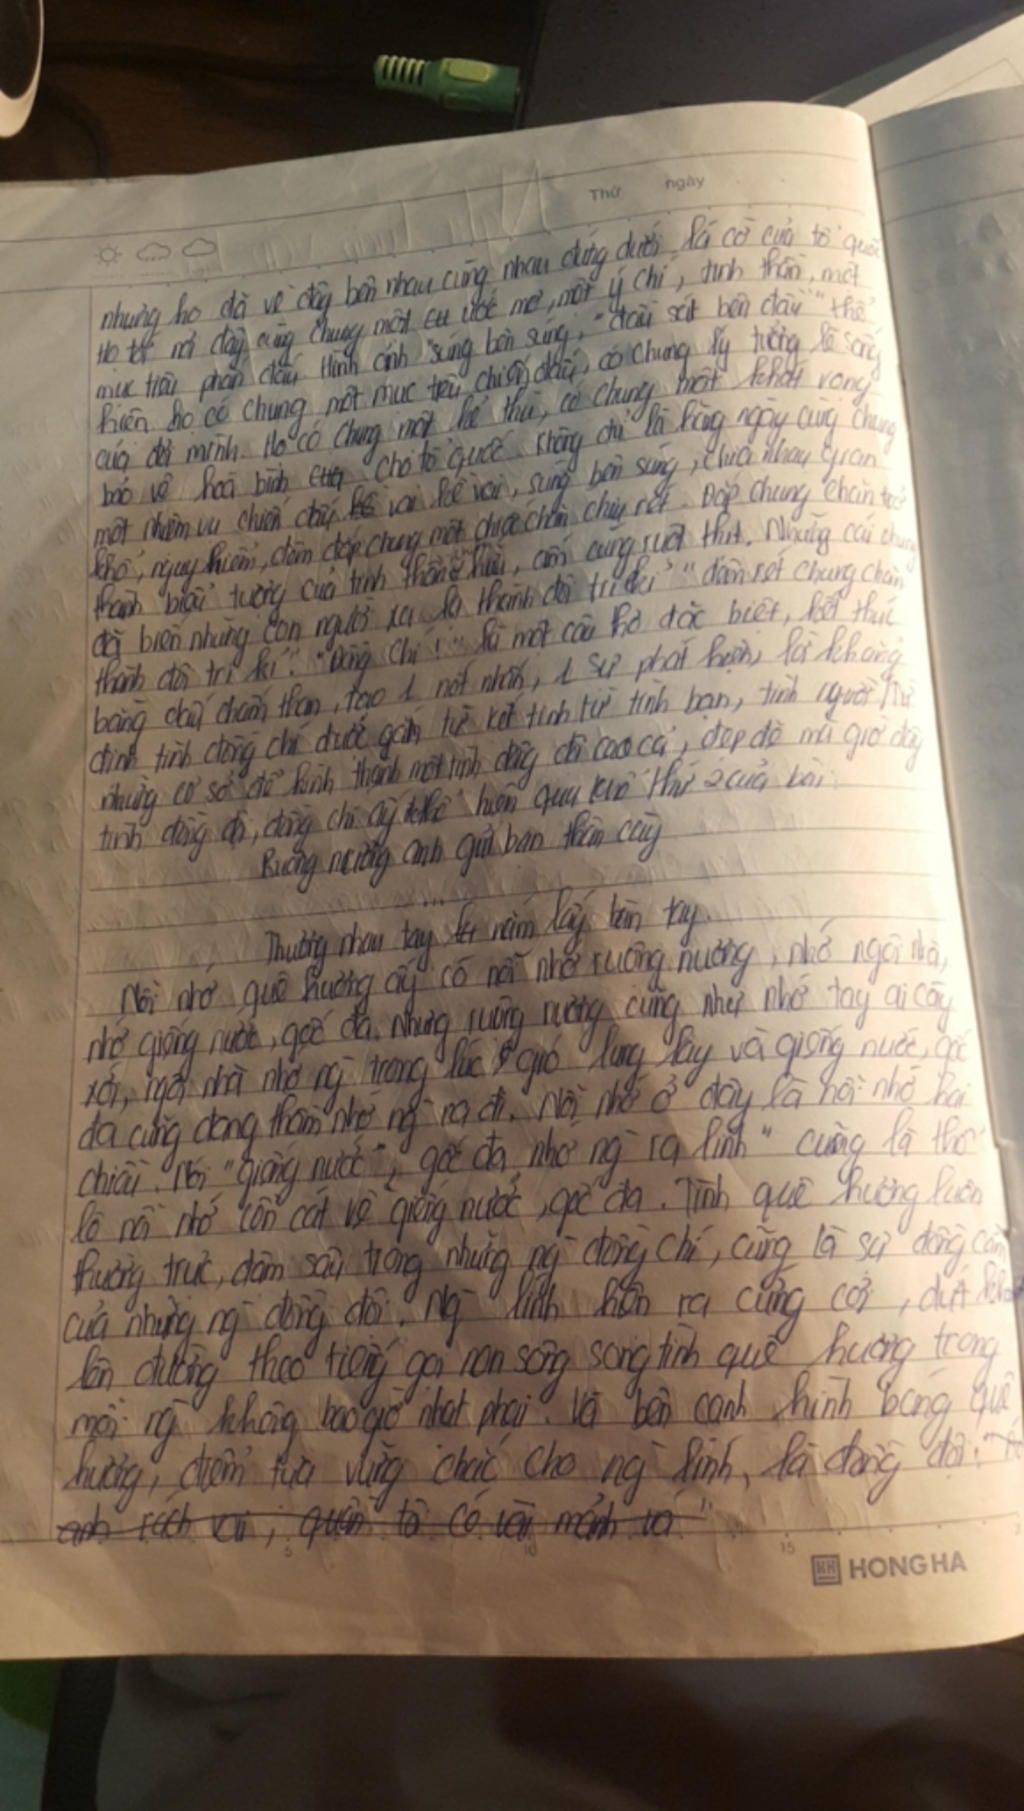 Thứ ngày
nhưng họ đã về đây bên nhau cùng nhau đứng dưới lá cờ của tổ quốc
Họ từ nơi đây cùng chung một ước mơ, một ý chí, tinh thần, một
mục tiêu phấn đấu. Hình ảnh "súng bên súng, đầu sát bên đầu" thể
hiện họ có chung một mục tiêu chiến đấu, có chung lý tưởng lẽ sống
của đời mình. Họ có chung một kẻ thù, có chung một khát vọng
bảo vệ hoà bình cho tổ quốc. Không chỉ là hằng ngày cùng chung
một nhiệm vụ chiến đấu vai kề vai, súng bên súng, chia nhau gian
khổ, nguy hiểm, đêm đắp chung một chiếc chăn chịu rét. Đắp chung chăn trở
thành biểu tượng của tình thân hữu, ấm cúng ruột thịt. Những cái chung
đã biến những con người xa lạ thành đôi tri kỉ "đêm rét chung chăn
thành đôi tri kỉ". "Đồng chí!" là một câu thơ đặc biệt, kết thúc
bằng dấu chấm than, tạo 1 nốt nhấn, 1 sự phát hiện, lời khẳng
định tình đồng chí được gắn từ kết tinh từ tình bạn, tình người, từ
những cơ sở để hình thành một tình đồng chí cao cả, đẹp đẽ mà giờ đây
tình đồng đội, đồng chí ấy thể hiện qua khổ thứ 2 của bài:
Ruộng nương anh gửi bạn thân cày
...
Thương nhau tay nắm lấy bàn tay.
Nỗi nhớ quê hương ấy có nỗi nhớ ruộng nương, nhớ ngôi nhà,
nhớ giếng nước, gốc đa. Nhưng ruộng nương cũng như nhớ tay ai cày
xới, ngôi nhà nhớ ng trong lúc gió lung lay và giếng nước, gốc
đa cũng đang thầm nhớ ng ra đi. Nỗi nhớ ở đây là nỗi nhớ hai
chiều. Nói "giếng nước, gốc đa nhớ ng ra lính" cũng là thổ
lộ nỗi nhớ về giếng nước, gốc đa. Tình quê hương luôn
thường trực, đậm sâu trong những ng đồng chí, cũng là sự đồng cảm
của những ng đồng đội. Ng lính hẳn ra cứng cỏi, dứt khoát
lên đường theo tiếng gọi non sông song tình quê hương trong
mỗi ng không bao giờ nhạt phai. Và bên cạnh hình bóng quê
hương, điểm tựa vững chắc cho ng lính, là đồng đội:
anh rách vai, quần tôi có vài mảnh vá"
5 10 15
HONG HA